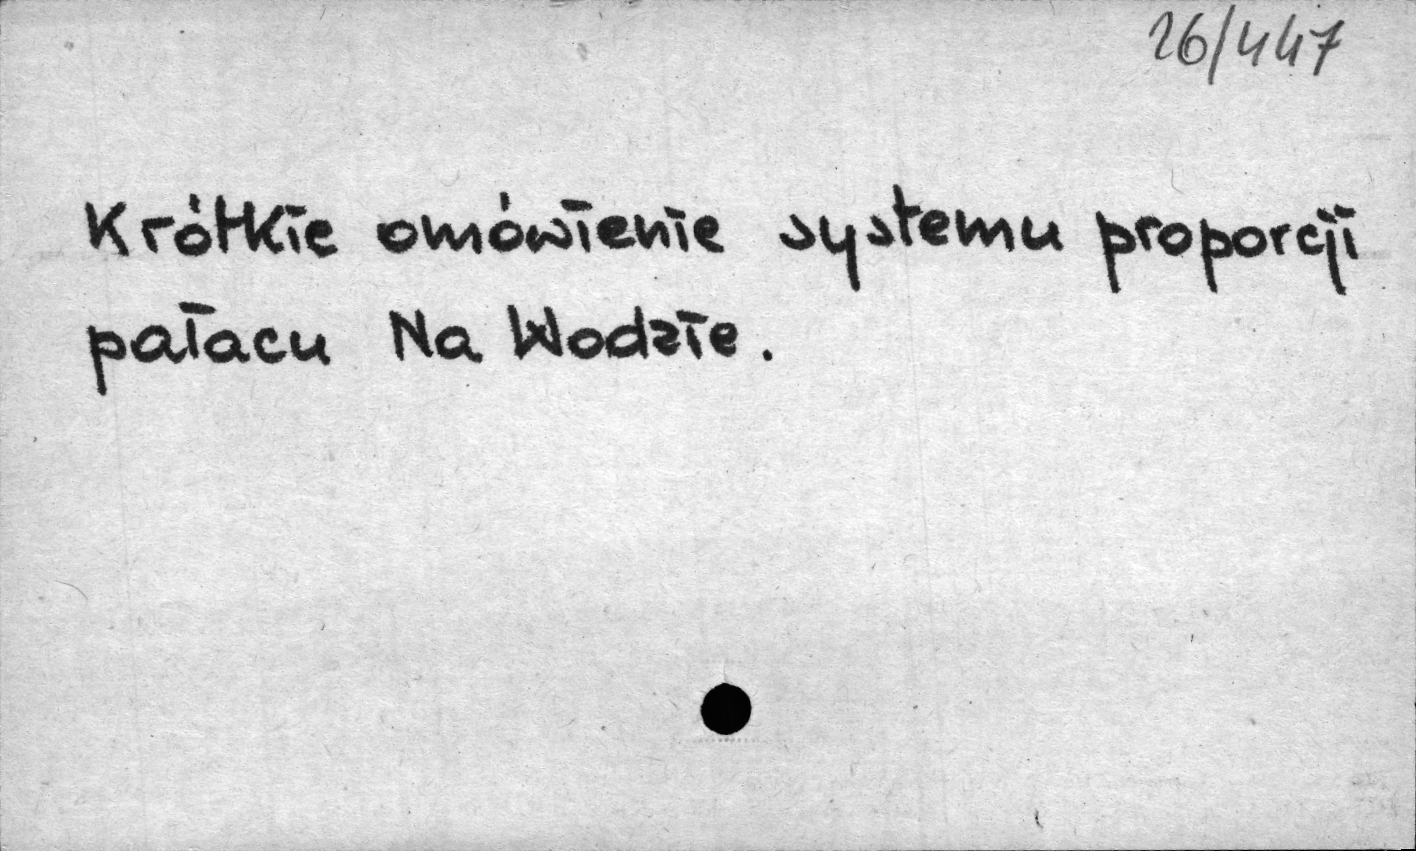 26/447
Krótkie omówienie systemu proporcji
pałacu Na Wodzie.